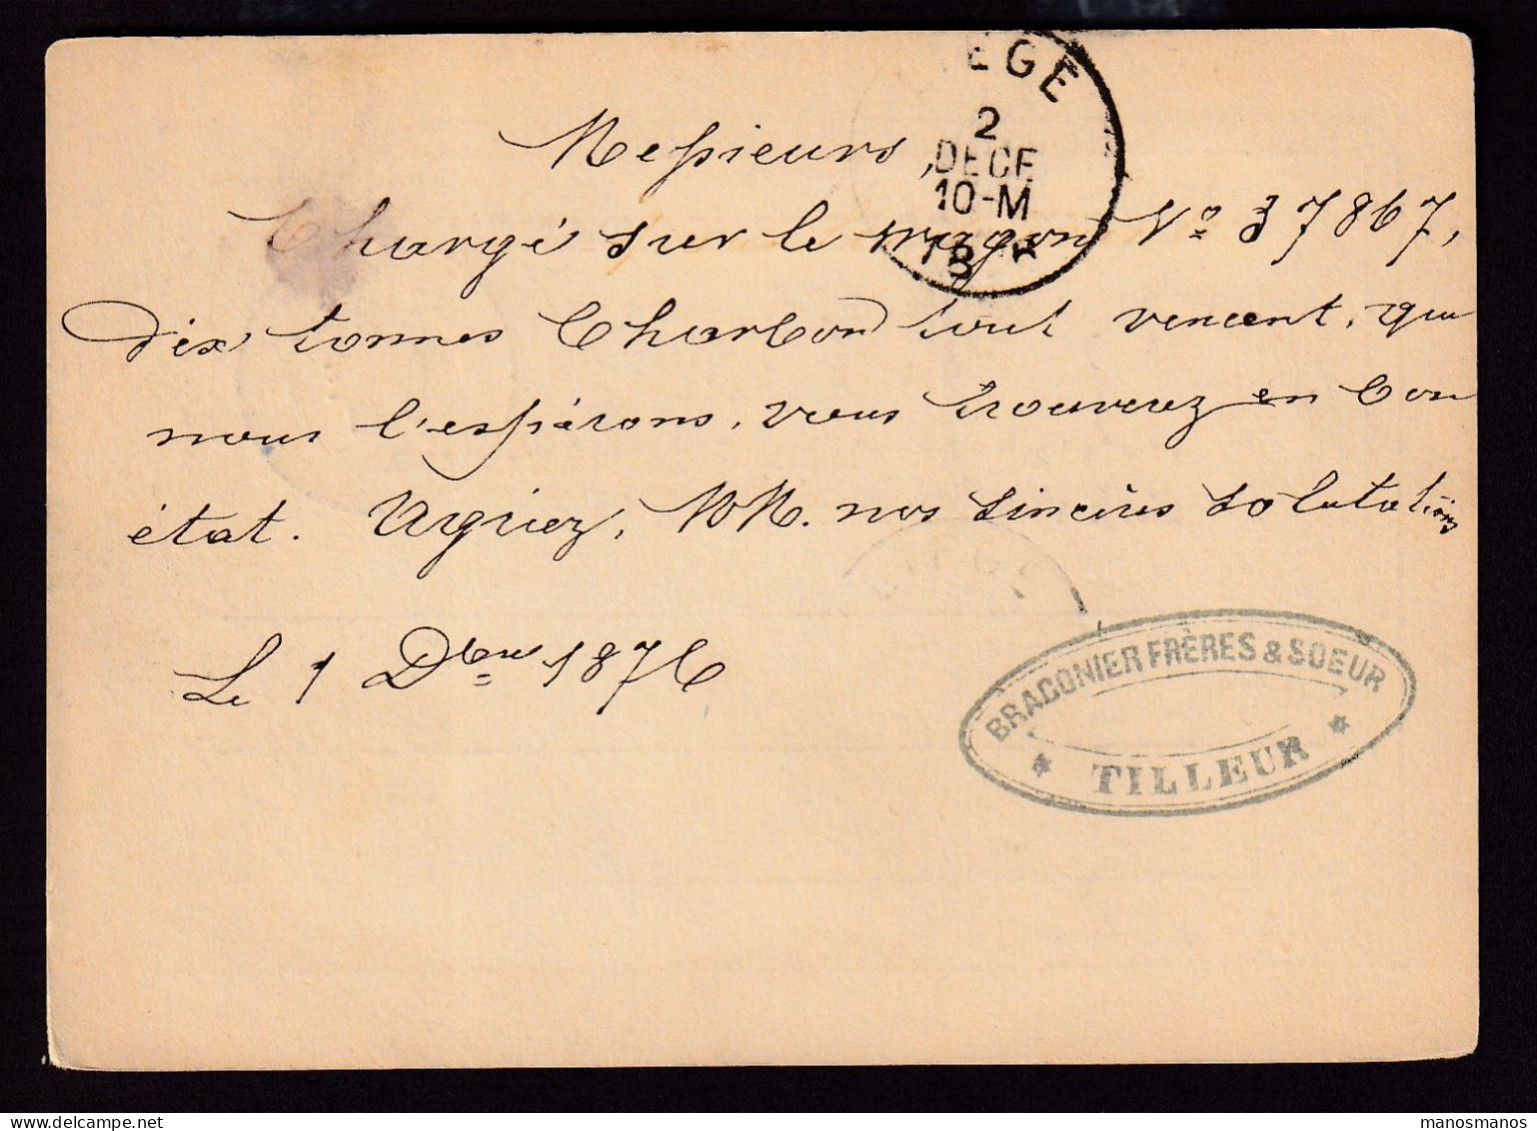 EGE
2
DECE
10-M
18
Messieurs,
Chargé sur le wagon Nº 37867,
dix tonnes Charbon tout venant, que
nous l'espérons, vous trouverez en bon
état. Agréez, MM. nos sincères salutations
Le 1 Dbre 1876
BRACONIER FRÈRES & SOEUR
TILLEUR
www.delcampe.net
manosmanos